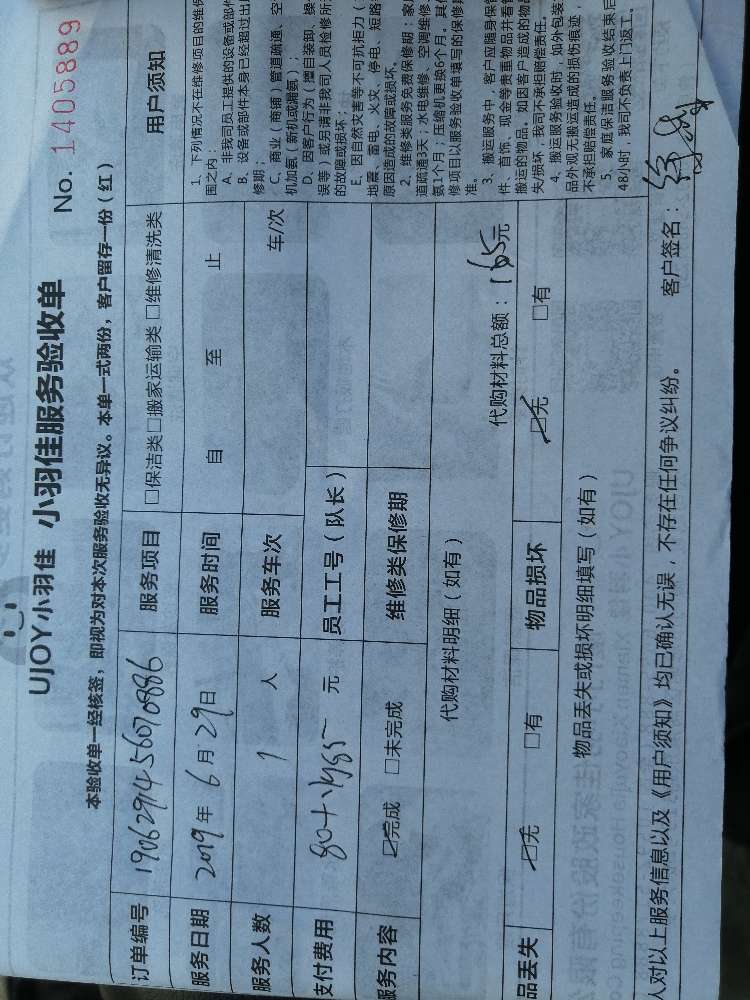 UJOY小羽佳 小羽佳服务验收单
No. 1405889
本验收单一经核签，即视为对本次服务验收无异议。本单一式两份，客户留存一份（红）
订单编号 1906291456070886 服务项目 □保洁类□搬家运输类□维修清洗类 用户须知
服务日期 2019年6月29日 服务时间 自 至 止
服务人数 1 人 服务车次 车/次
支付费用 元 员工工号（队长）
服务内容 ☑完成 □未完成 维修类保修期
代购材料明细（如有） 代购材料总额：165元
品丢失 ☑无 □有 物品损坏 ☑无 □有
物品丢失或损坏明细填写（如有）
1、下列情况不在维修项目的维保
围之内：
A、非我司员工提供的设备或部件
B、设备或部件本身已经超过出
修期；
C、商业（商铺）管道疏通、空
机加氨（新机或漏氨）；
D、因客户行为（擅自装卸、操
误等）或另请非我司人员检修所
的故障或损坏；
E、因自然灾害等不可抗拒力（
地震、雷电、火灾、停电、短路
原因造成的故障或损坏。
2、维修类服务免费保修期：家
道疏通3天；水电维修、空调维修
氨1个月；压缩机更换6个月。其他
修项目以服务验收单填写的保修期
准。
3、搬运服务中，客户应随身
件、首饰、现金等贵重物品并看管
搬运的物品。如因客户造成的物品
失/损坏，我司不承担赔偿责任。
4、搬运服务验收时，如外包装
品外观无搬运造成的损伤痕迹，
不承担赔偿责任。
5、家庭保洁服务验收结束后
48小时，我司不负责上门返工。
人对以上服务信息以及《用户须知》均已确认无误，不存在任何争议纠纷。 客户签名：